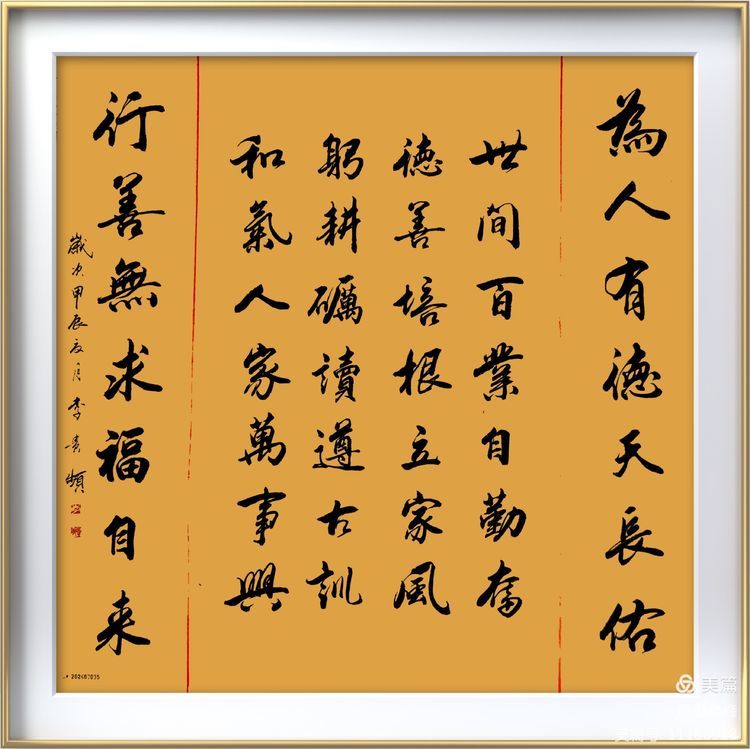 為人有德天長佑
世間百業自勤奮
德善培根立家風
躬耕礪讀遵古訓
和氣人家萬事興
行善無求福自来
歲次甲辰夏月李貴
美篇